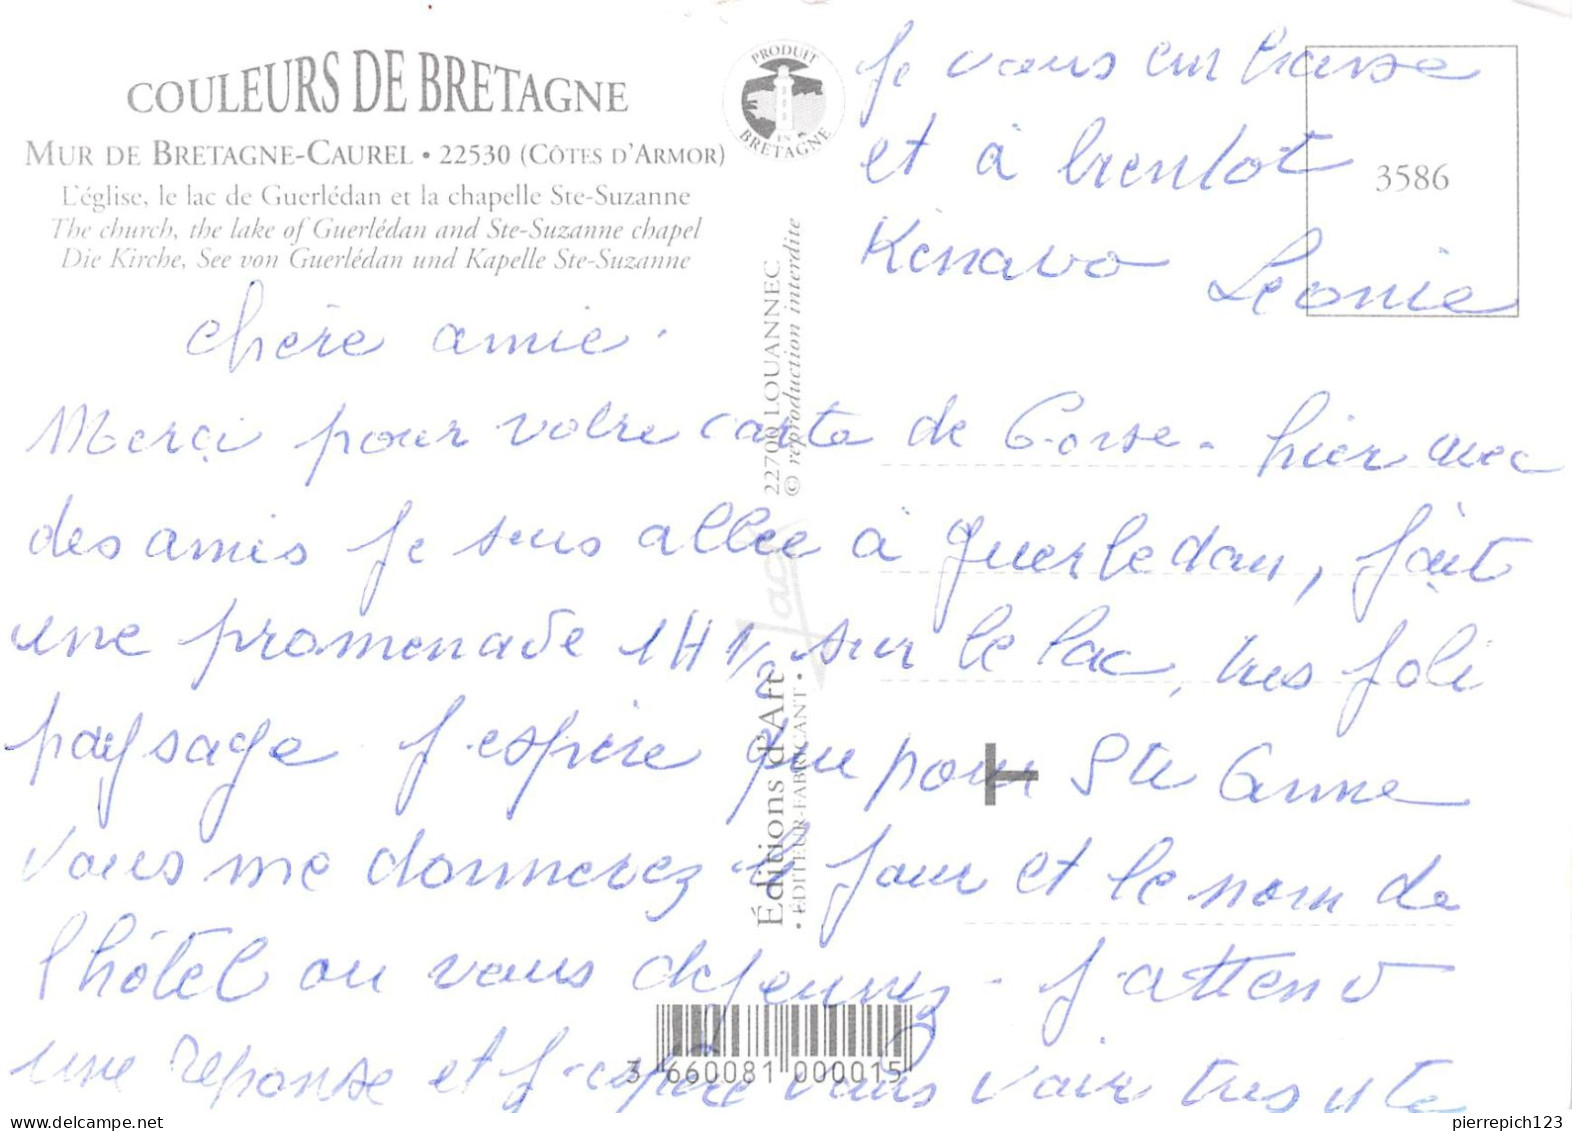 COULEURS DE BRETAGNE
MUR DE BRETAGNE-CAUREL • 22530 (CÔTES D'ARMOR)
L'église, le lac de Guerlédan et la chapelle Ste-Suzanne
The church, the lake of Guerlédan and Ste-Suzanne chapel
Die Kirche, See von Guerlédan und Kapelle Ste-Suzanne
PRODUIT EN BRETAGNE
3586
chère amie.
Merçi pour votre carte de Corse - hier avec
des amis je suis allée à guerledan, fait
une promenade 1H 1/2 sur le lac, tres joli
paysage j'espère que pour Ste Anne
vous me donnerez le jour et le nom de
l'hôtel ou vous dejeunez - j'attend
une reponse et j'espère vous voir tres vite
Je vous embrasse
et à bientot
Kenavo Leonie
Éditions d'Art Jack 22700 LOUANNEC
• ÉDITEUR-FABRICANT • © reproduction interdite
3 660081 000015
pierrepich123